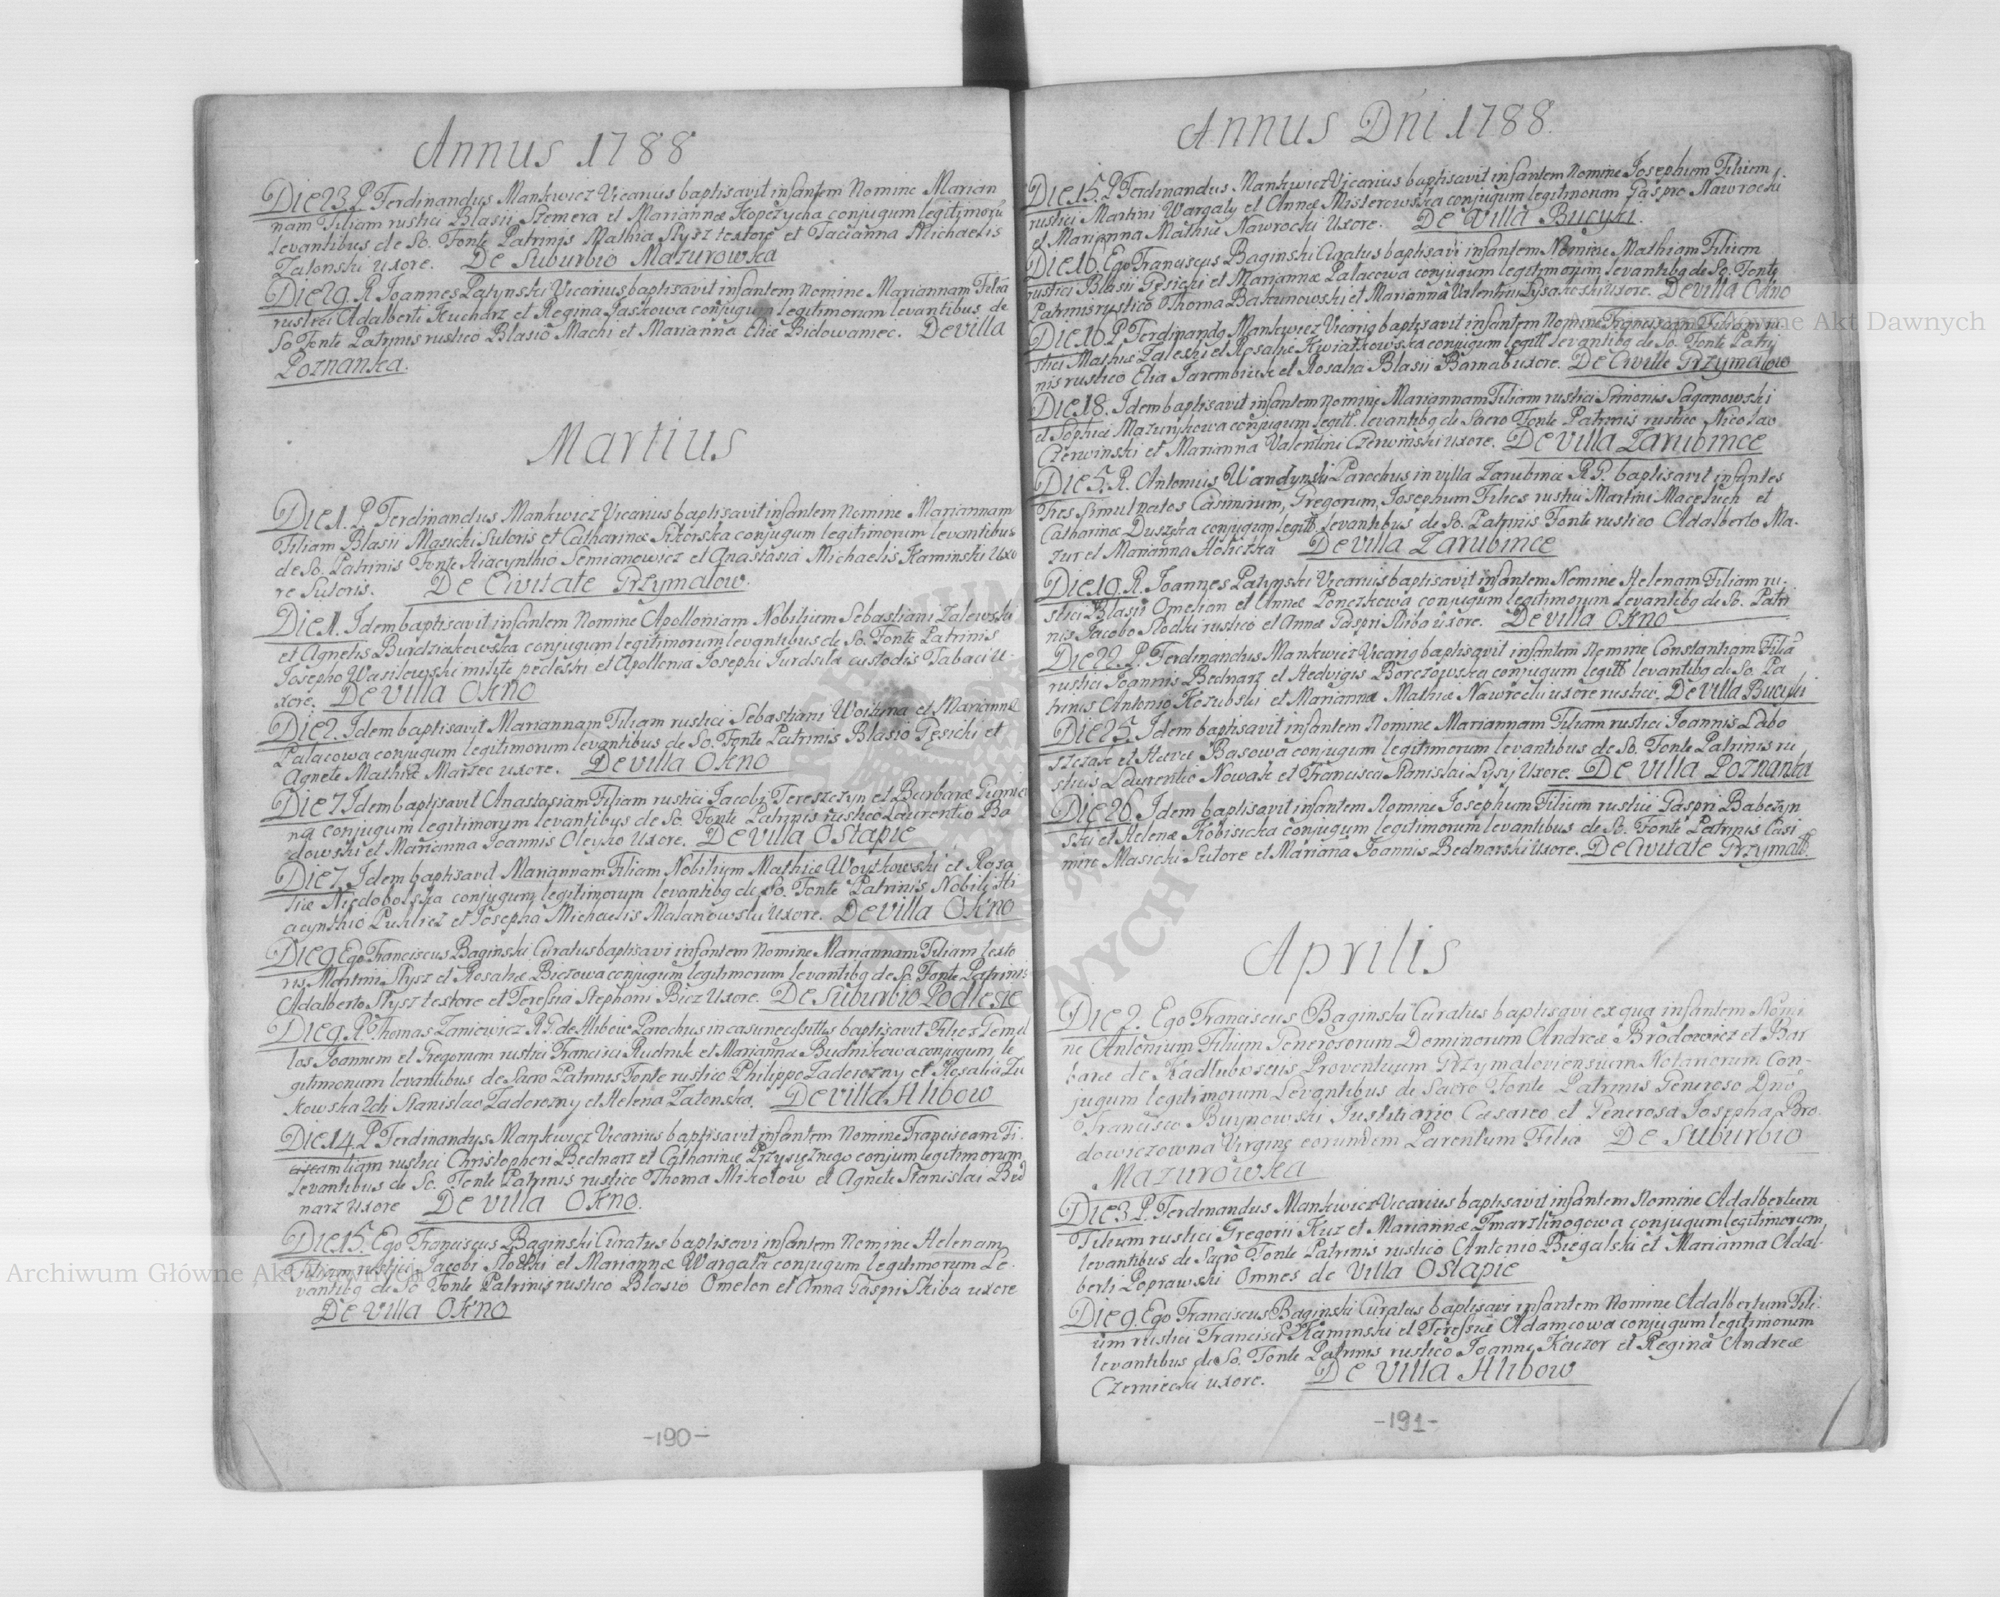 Annus 1788
Die 23. P. Ferdinandus Mankwicz Vicarius baptisavit infantem Nomine Marian
nam Filiam rustici Blasii Szemera et Mariannæ Kopczycha conjugum legitimorũ
levantibus de So. Fonte Patrinis Mathia Stysz textore et Tacianna Michaelis
Zatonski uxore. De Suburbio Mazurowka
Die 29. R. Joannes Patynski Vicarius baptisavit infantem Nomine Mariannam Filiã
rustici Adalberti Kucharz et Regina Jaskowa conjugum legitimorum levantibus de
So Fonte Patrinis rustico Blasio Machi et Marianna Eliæ Bidowaniec. De villa
Poznanka.
Martius
Die 1. P. Ferdinandus Mankwicz Vicarius baptisavit infantem Nomine Mariannam
Filiam Blasii Masicki Sutoris et Catharinæ Sikorska conjugum legitimorum levantibus
de So. Patrinis Fonte Hiacynthio Semianowicz et Anastasia Michaelis Kaminski Uxo
re Sutoris. De Civitate Grzymalow.
Die 1. Idem baptisavit infantem Nomine Apolloniam Nobilium Sebastiani Zalewski
et Agnetis Burdziakowska conjugum legitimorum levantibus de So. Fonte Patrinis
Josepho Wasilewski milite pedestri et Apollonia Josephi Jurdsila custodis Tabaci U-
xore. De Villa Okno
Die 2. Idem baptisavit Mariannam Filiam rustici Sebastiani Woituna et Mariannæ
Palacowa conjugum legitimorum levantibus de So. Fonte Patrinis Blasio Gęsicki et
Agnete Mathiæ Marzec uxore. De villa Okno
Die 7. Idem baptisavit Anastasiam Filiam rustici Jacobi Tereszczyn et Barbaræ Gumien
na conjugum legitimorum levantibus de So. Fonte Patrinis rustico Laurentio Ba
dowski et Marianna Joannis Oleyko Uxore. De Villa Ostapie
Die 7. Idem baptisavit Mariannam Filiam Nobilium Mathiæ Woytkowski et Rosa
liæ Niedobolska conjugum legitimorum levantibq de So. Fonte Patrinis Nobili Hi
acynthio Puklicz et Josepha Michaelis Malanowski Uxore. De Villa Okno
Die 9. Ego Franciscus Baginski Curatus baptisavi infantem Nomine Mariannam Filiam texto
ris Martini Stysz et Rosaliæ Biczowa conjugum legitimorum levantibq de So. Fonte Patrinis
Adalberto Stysz textore et Teressia Stephani Bicz Uxore. De Suburbio Podlesie
Die 9. R. Thomas Zaniewicz R. G. de Hlibow Parochus in casu necessittis baptisavit Filios Gemel
los Joannem et Gregorium rustici Francisci Rudnik et Mariannæ Budnikowa conjugum le
gitimorum levantibus de Sacro Patrinis Fonte rustico Philippo Zaderezny et Rosalia Zu
kowska 2di Stanislao Zaderezny et Helena Zatonska. De villa Hlibow
Die 14. P. Ferdinandus Mankwicz Vicarius baptisavit infantem Nomine Franciscam Fi-
liam rustici Christopheri Bednarz et Catharinæ Przysiężnego conjum legitimorum
levantibus de So. Fonte Patrinis rustico Thoma Mikolow et Agnete Stanislai Bed
narz Uxore De villa Okno.
Die 15. Ego Franciscus Baginski Curatus baptisavi infantem Nomine Helenam
Filiam rustici Jacobi Stodki et Mariannæ Wargata conjugum legitimorum Le-
vantibq de So Fonte Patrinis rustico Blasio Omelon et Anna Gaspri Skiba uxore
De Villa Okno
-190-
Annus Dni 1788.
Die 15. P. Ferdinandus Mankwicz Vicarius baptisavit infantem Nomine Josephum Filium
rustici Martini Wargaty et Annæ Misterowska conjugum legitimorum Gaspro Nawrocki
et Marianna Mathiæ Nawrocki Uxore. De Villa Bucyki.
Die 16. Ego Franciscus Baginski Curatus baptisavi infantem Nomine Mathiam Filium
rustici Blasii Gęsicki et Mariannæ Palacowa conjugum legitimorum levantibq de So. Fonte
Patrinis rustico Thoma Bakunowski et Marianna Valentini Lysakoski uxore. De villa Okno
Die 16. P. Ferdinando Mankwicz Vicariq baptisavit infantem Nomine Franciscam Filiam ru
stici Mathiæ Zaleski et Rosaliæ Kwiatkowska conjugum legitt levantibq de So. Fonte Patri
nis rustico Elia Jarembiuk et Rosalia Blasii Barnab uxore. De Civitte Grzymalow
Die 18. Idem baptisavit infantem nomine Mariannam Filiam rustici Simonis Saganowski
et Sophiæ Mazurykowa conjugum legitt. levantibq de Sacro Fonte Patrinis rustico Nicolao
Czerwinski et Marianna Valentini Czerwinski uxore. De Villa Zarubince
Die 5. R. Antonius Wandynski Parochus in villa Zarubince R. G. baptisavit infantes
tres simul natos Casimirum, Gregorum, Josephum Filios rustici Martini Maceluch et
Catharinæ Duszka conjugum legitt. levantibus de So. Patrinis Fonte rustico Adalberto Ma-
zur et Marianna Holiczka De villa Zarubince
Die 19. R. Joannes Patynski Vicarius baptisavit infantem Nomine Helenam Filiam ru-
stici Blasii Omelian et Annæ Ponczkowa conjugum legitimorum levantibq de So. Patri
nis Jacobo Stodki rustico et Anna Gaspri Skiba uxore. De villa Okno
Die 22. P. Ferdinandus Mankwicz Vicariq baptisavit infantem Nomine Constantiam Filiã
rustici Joannis Bednarz et Hedvigis Borczowska conjugum legitt levantibq de So. Pa
trinis Antonio Kozubski et Marianna Mathiæ Nawrocki uxore rustico. De villa Bucyki
Die 25. Idem baptisavit infantem Nomine Mariannam Filiam rustici Joannis Labo
szczak et Hevæ Basowa conjugum legitimorum levantibus de So. Fonte Patrinis ru
sticis Laurentio Nowak et Francisca Stanislai Lysy Uxore. De villa Poznanka
Die 26. Idem baptisavit infantem Nomine Josephum Filium rustici Gaspri Babczyn
ski et Helenæ Kobisicka conjugum legitimorum levantibus de So. Fonte Patrinis Casi
miro Masicki Sutore et Mariana Joannis Bednarski Uxore. De Civitate Grzymatt.
Aprilis
Die 2. Ego Franciscus Baginski Curatus baptisavi ex qua infantem Nomi
ne Antonium Filium Generosorum Dominorum Andreæ Brodowicz et Bar
baræ de Kadlubowscus Proventuum Grzymaloviensium Notariorum Con-
jugum legitimorum Levantibus de Sacro Fonte Patrinis Generoso Dno
Francisco Buynowski Justitiario Cæsareo et Generosa Josepha Bro
dowiczowna Virgine eorundem Parentum Filia De Suburbio
Mazurowka
Die 3. P. Ferdinandus Mankwicz Vicarius baptisavit infantem Nomine Adalbertum
Filium rustici Gregorii Kuz et Mariannæ Zmarzlinogowa conjugum legitimorum
levantibus de Sacro Fonte Patrinis rustico Antonio Biegalski et Marianna Adal-
berti Poprawski Omnes de Villa Ostapie
Die 9. Ego Franciscus Baginski Curatus baptisavi infantem Nomine Adalbertum Fili-
um rustici Francisci Kaminski et Teressiæ Adamcowa conjugum legitimorum
levantibus de So. Fonte Patrinis rustico Joanne Kaczor et Regina Andreæ
Czerniecki uxore. De Villa Hlibow
-191-
Archiwum Główne Akt Dawnych
Archiwum Główne Akt Dawnych